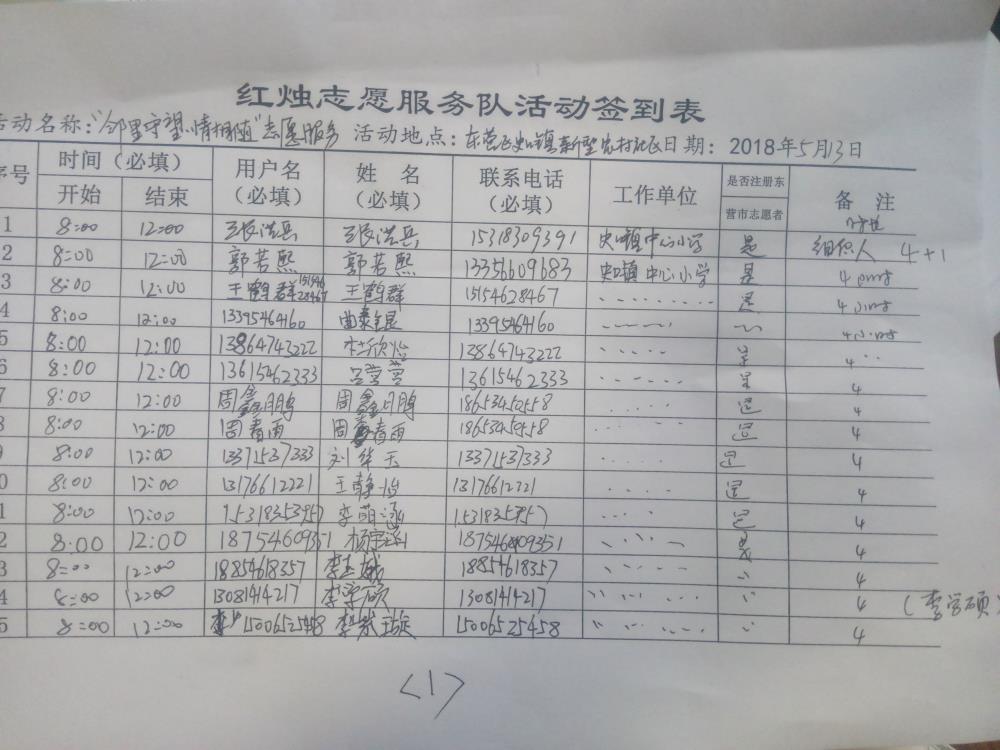 红烛志愿服务队活动签到表
活动名称：“邻里守望·情相随”志愿服务 活动地点：东营区史口镇新型农村社区 日期：2018年5月13日
序号 时间（必填） 用户名（必填） 姓 名（必填） 联系电话（必填） 工作单位 是否注册东营市志愿者 备 注
开始 结束
1 8:00 12:00 张浩兵 张浩兵 15318309391 史口镇中心小学 是 组织人 4+1
2 8:00 12:00 郭若熙 郭若熙 13356609683 史口镇中心小学 是 4小时
3 8:00 12:00 王鹤群 15154628467 王鹤群 15154628467 ········· 是 4小时
4 8:00 12:00 13395464160 曲 13395464160 4小时
5 8:00 12:00 13864743222 杜欣怡 13864743222 ····· 是 4
6 8:00 12:00 13615462333 吕莹莹 13615462333 ······ 是 4
7 8:00 12:00 周鑫鹏 周鑫鹏 ····· 是 4
8 8:00 12:00 周春雨 周春雨 ····· 是 4
9 8:00 12:00 13371537333 刘华玉 13371537333 ····· 是 4
0 8:00 12:00 13176612221 王静怡 13176612221 ····· 是 4
1 8:00 12:00 15318353957 李萌涵 ····· 是 4
2 8:00 12:00 18754609351 杨宇涵 18754609351 是 4
3 8:00 12:00 18854618357 李 18854618357 4
4 8:00 12:00 13081414217 李学硕 13081414217 4 (李学硕)
5 8:00 12:00 15006525458 李 15006525458 4
<1>